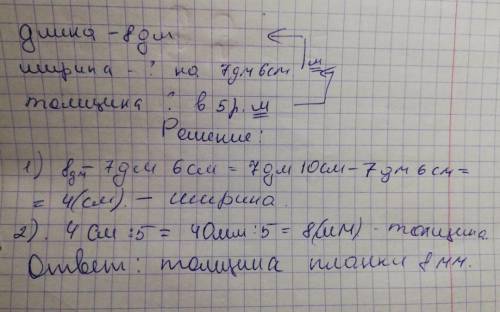 длина - 8 дм
ширина - ? на 7дм 6см м
толщина ? в 5 р. м
Решение:
1) 8дм - 7дм 6см = 7дм 10см - 7дм 6см =
= 4(см) - ширина.
2). 4 см : 5 = 40мм : 5 = 8(мм) - толщина.
Ответ: толщина планки 8 мм.